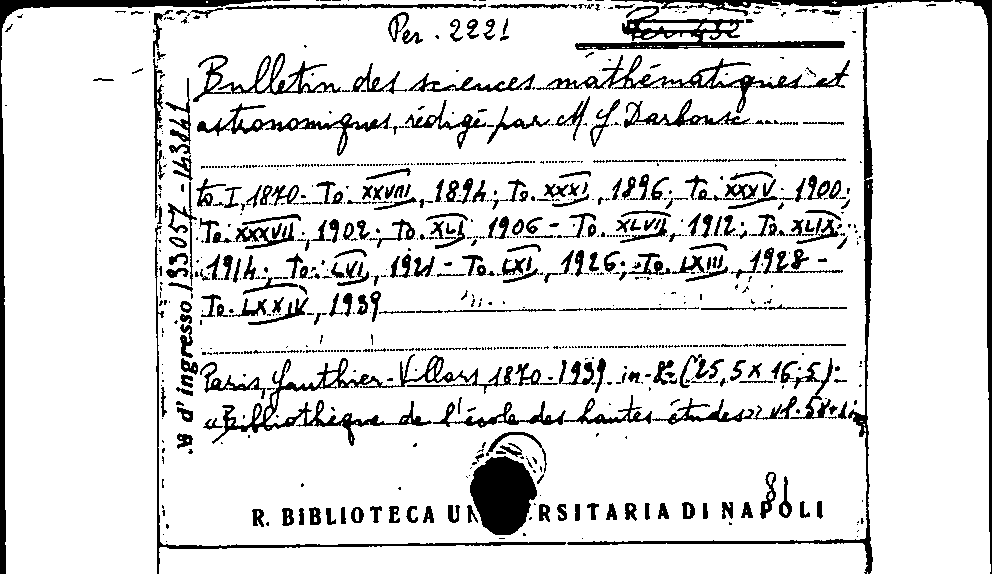 Per. 2221 Per. 432
Bulletin des sciences mathématiques et
astronomiques, rédigé par M. G. Darboux ...
to I, 1870 - To. XXVIII, 1894; To. XXXI, 1896; To. XXXV, 1900;
To. XXXVII, 1902; To. XLI, 1906 - To. XLVII, 1912; To. XLIX,
1914; To. LVI, 1921 - To. LXI, 1926; To. LXIII, 1928 -
To. LXXIV, 1939
Paris, Gauthier-Villars, 1870-1939 in-8º (25,5 x 16,5).
«Bibliothèque de l'école des hautes études» vl. 58
81
R. BIBLIOTECA UN RSITARIA DI NAPOLI
N d'ingresso 133057-143841